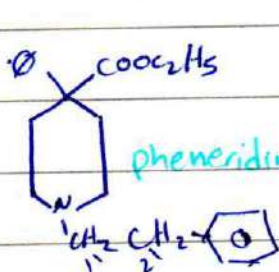 Ø COOC₂H₅
pheneridin
N
CH₂ CH₂
1 2